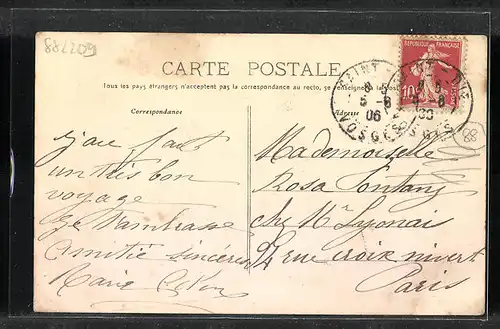 882209
CARTE POSTALE
Tous les pays étrangers n'acceptent pas la correspondance au recto, se renseigner à la
Correspondance
Adresse
REPUBLIQUE FRANÇAISE
10
SAINT-DIÉ
5-8
06
VOSGES
j'ai fait
un très bon
voyage
Je t'embrasse
Amitié sincères
Marie
Mademoiselle
Rosa Fontany
chez Mr Lyonnais
rue croix nivert
Paris
88